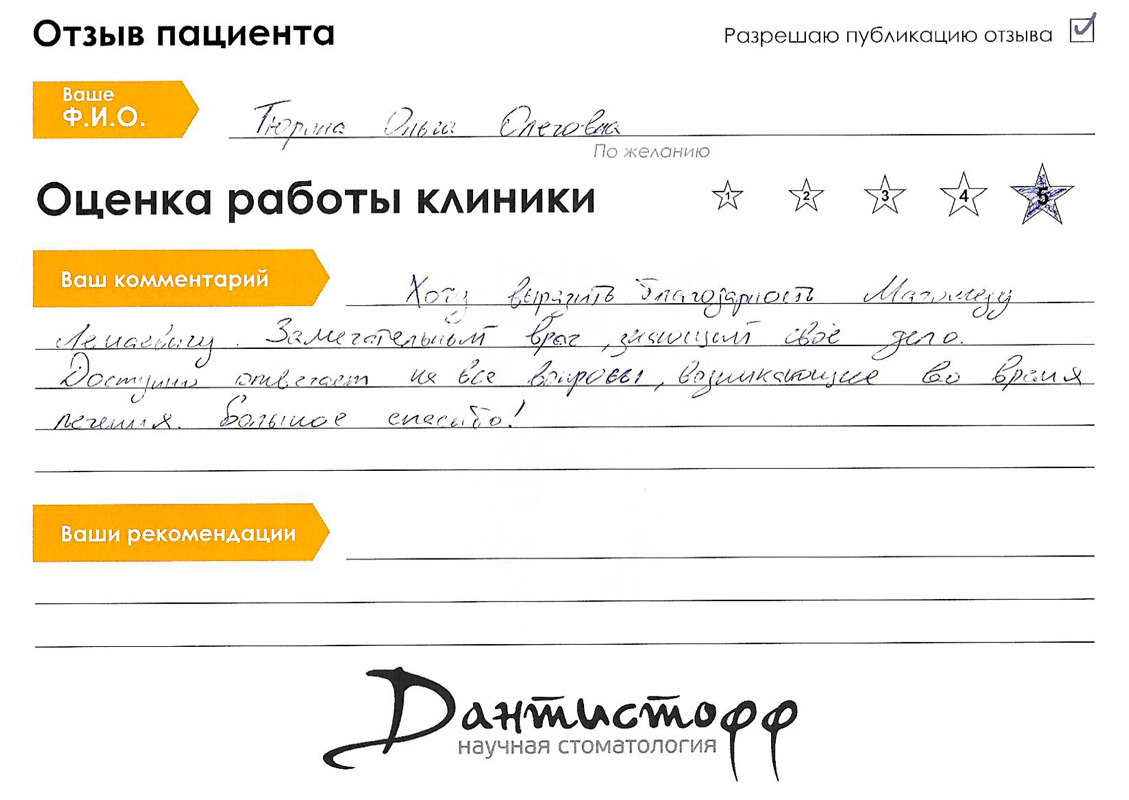 Отзыв пациента
Разрешаю публикацию отзыва
Ваше
Ф.И.О.
Ольга Олеговна
По желанию
Оценка работы клиники
1 2 3 4 5
Ваш комментарий
Хочу выразить благодарность Магомеду
. Замечательный врач, знающий своё дело.
Доступно отвечает на все вопросы, возникающие во время
лечения. Большое спасибо!
Ваши рекомендации
Дантистофф
научная стоматология